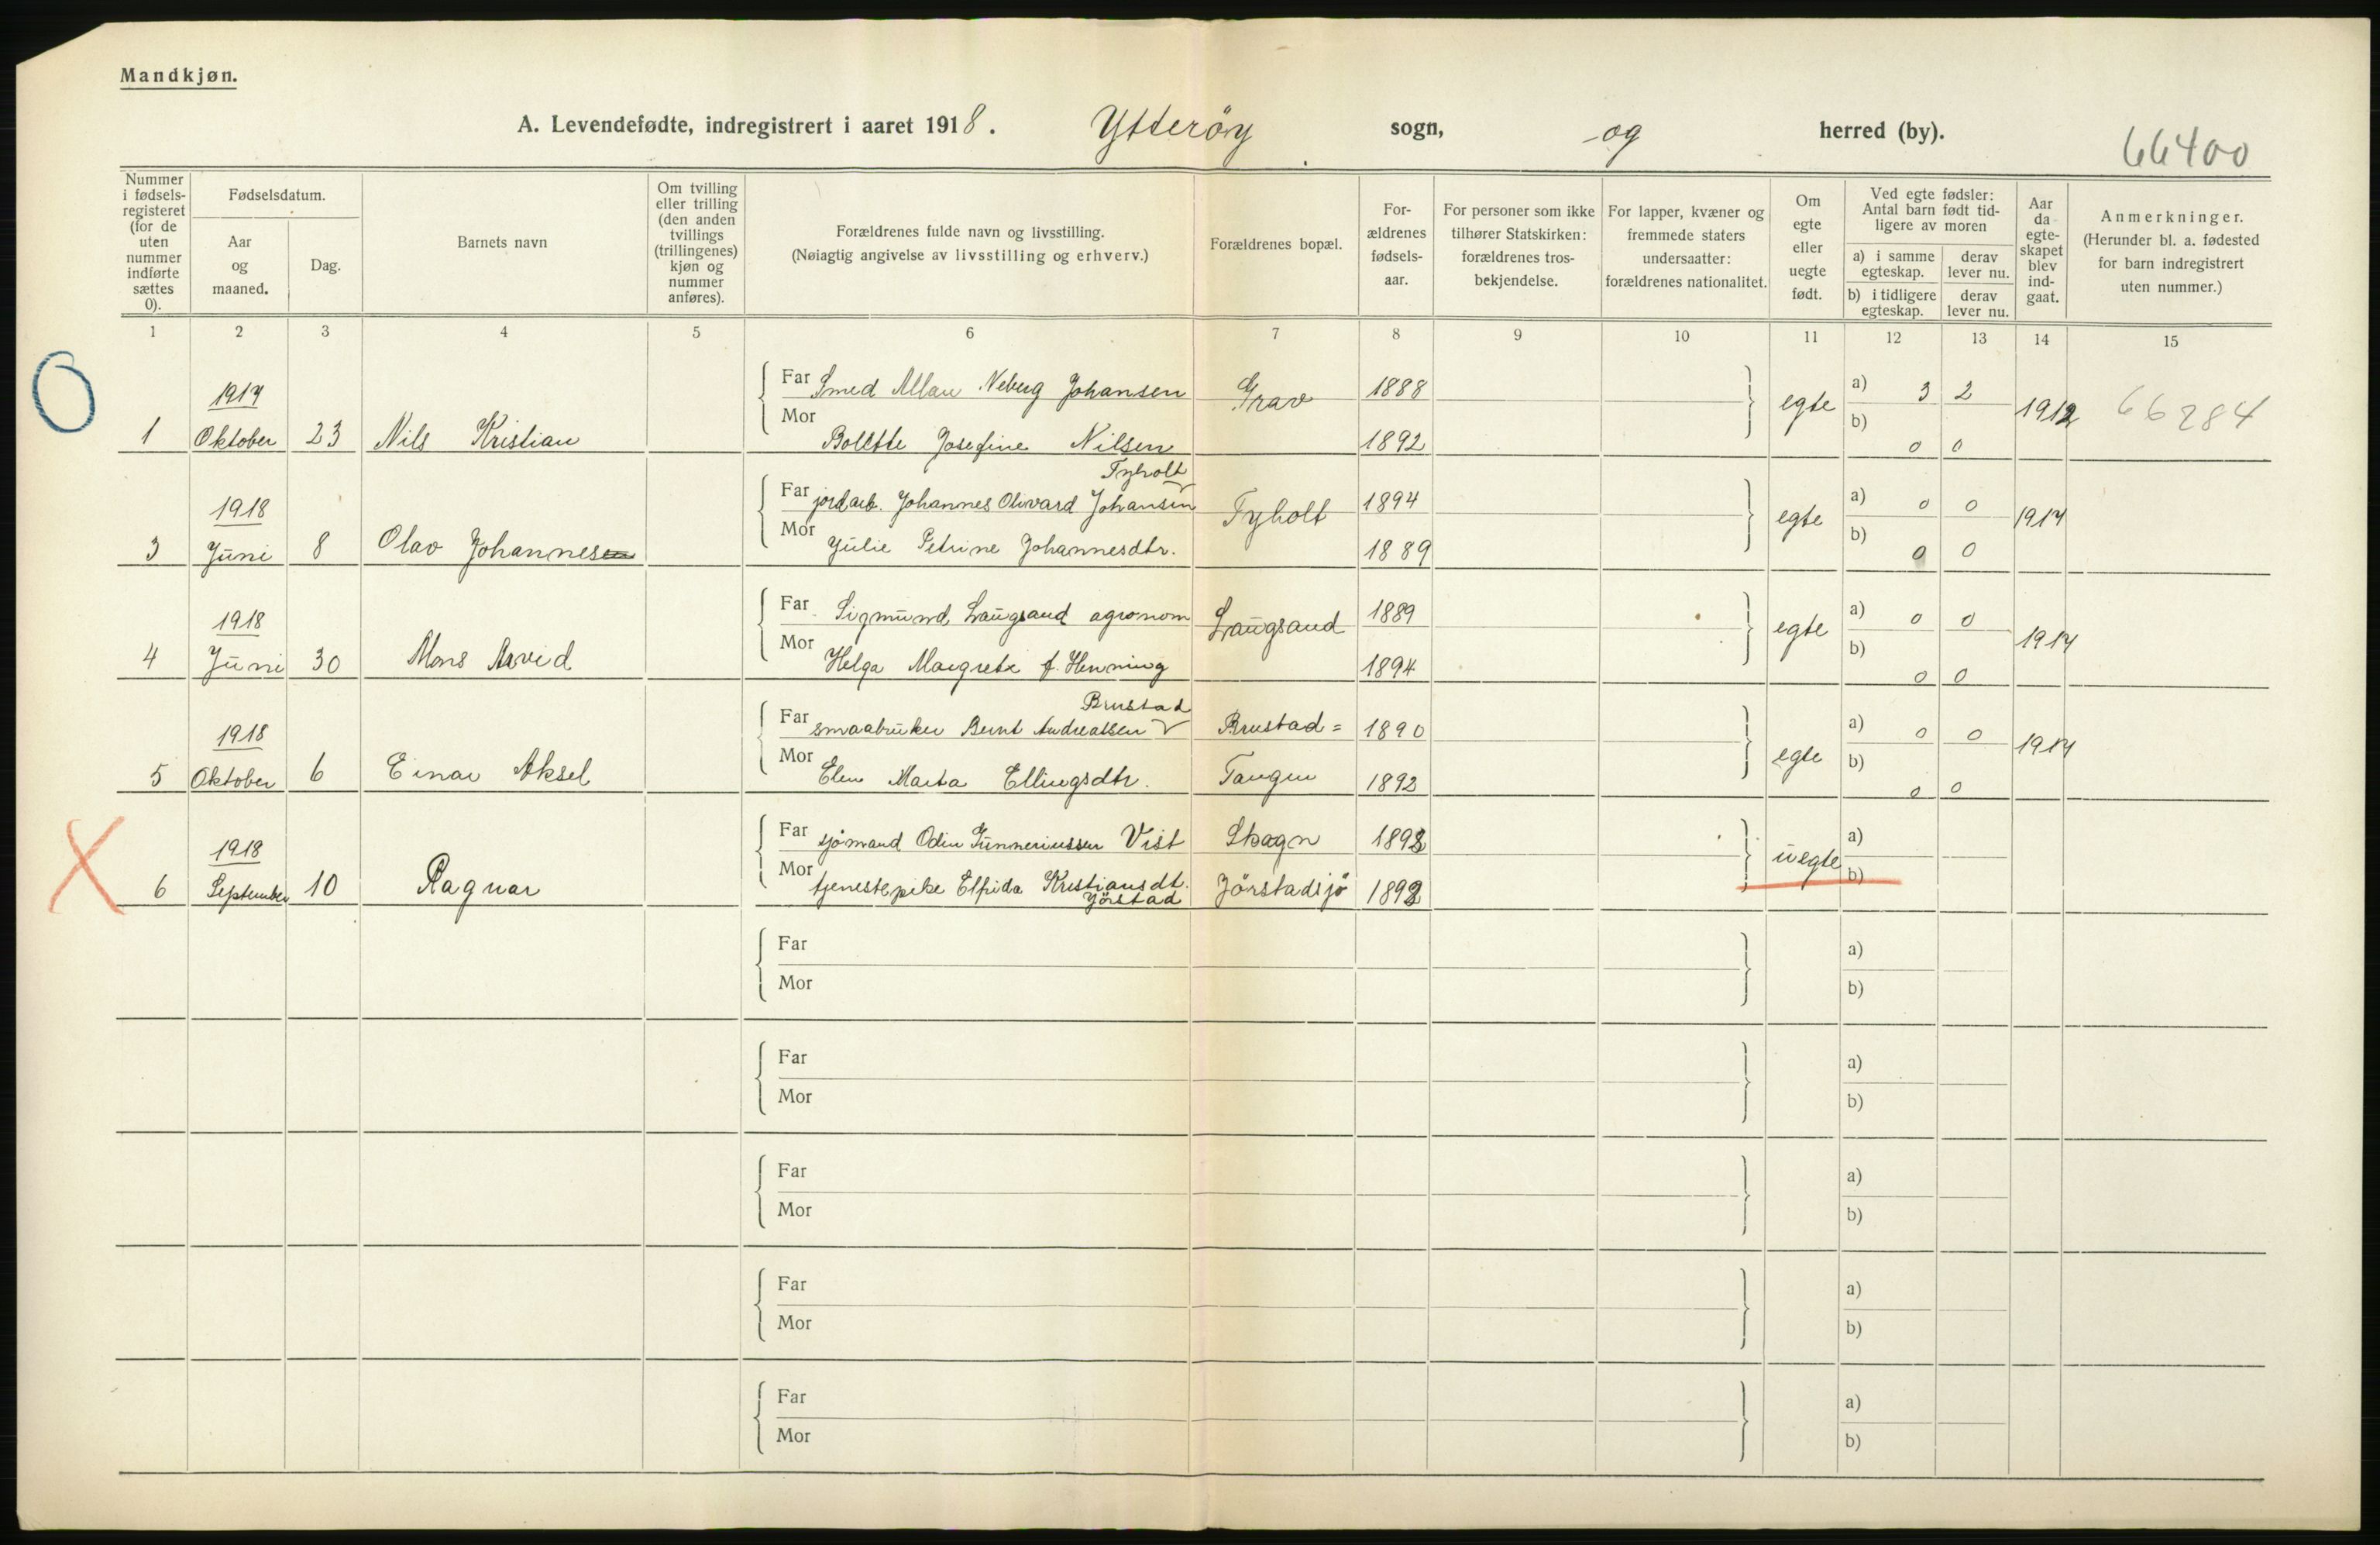 Mandkjøn.
A. Levendefødte, indregistrert i aaret 1918. Ytteröy sogn, og herred (by). 66400
Nummer i fødselsregisteret (for de uten nummer indførte sættes 0).
Fødselsdatum.
Aar og maaned.
Dag.
Barnets navn
Om tvilling eller trilling (den anden tvillings (trillingenes) kjøn og nummer anføres).
Forældrenes fulde navn og livsstilling.
(Nøiagtig angivelse av livsstilling og erhverv.)
Forældrenes bopæl.
Forældrenes fødselsaar.
For personer som ikke tilhører Statskirken: forældrenes trosbekjendelse.
For lapper, kvæner og fremmede staters undersaatter: forældrenes nationalitet.
Om egte eller uegte født.
Ved egte fødsler: Antal barn født tidligere av moren
a) i samme egteskap.
derav lever nu.
b) i tidligere egteskap.
derav lever nu.
Aar da egteskapet blev indgaat.
Anmerkninger.
(Herunder bl. a. fødested for barn indregistrert uten nummer.)
1 2 3 4 5 6 7 8 9 10 11 12 13 14 15
1917 Far Smed Allan Neberg Johansen Grav 1888 egte a) 3 2 1912 66284
1 Oktober 23 Nils Kristian Mor Bolette Josefine Nilsen 1892 b) 0 0
Tyholt
1918 Far jordarb. Johannes Olivard Johansen Tyholt 1894 egte a) 0 0 1917
3 Juni 8 Olav Johannesen Mor Julie Petrine Johannesdtr. 1889 b) 0 0
1918 Far Sigmund Laugsand agronom Laugsand 1889 egte a) 0 0 1917
4 Juni 30 Mons Arvid Mor Helga Margrete f. Henning 1894 b) 0 0
Brustad
1918 Far smaabruker Bernt Andreassen Brustad= 1890 egte a) 0 0 1917
5 Oktober 6 Einar Aksel Mor Elen Marta Ellingsdtr. Tangen 1892 b) 0 0
1918 Far sjømand Odin Gunneriussen Vist Skogn 1892 uegte a)
6 September 10 Ragnar Mor tjenestepike Elfrida Kristiansdt. Jörstadsjö 1892 b)
Jörstad
Far a)
Mor b)
Far a)
Mor b)
Far a)
Mor b)
Far a)
Mor b)
Far a)
Mor b)